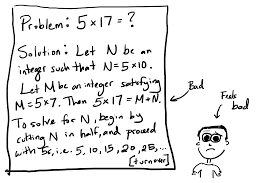 Problem: 5 × 17 = ?
Solution: Let N be an
integer such that N = 5×10.
Let M be an integer satisfying
M = 5×7. Then 5×17 = M+N.
To solve for N, begin by
cutting N in half, and proceed
with 5s, i.e. 5, 10, 15, 20, 25, ...
[turn over]
Bad
Feels
bad